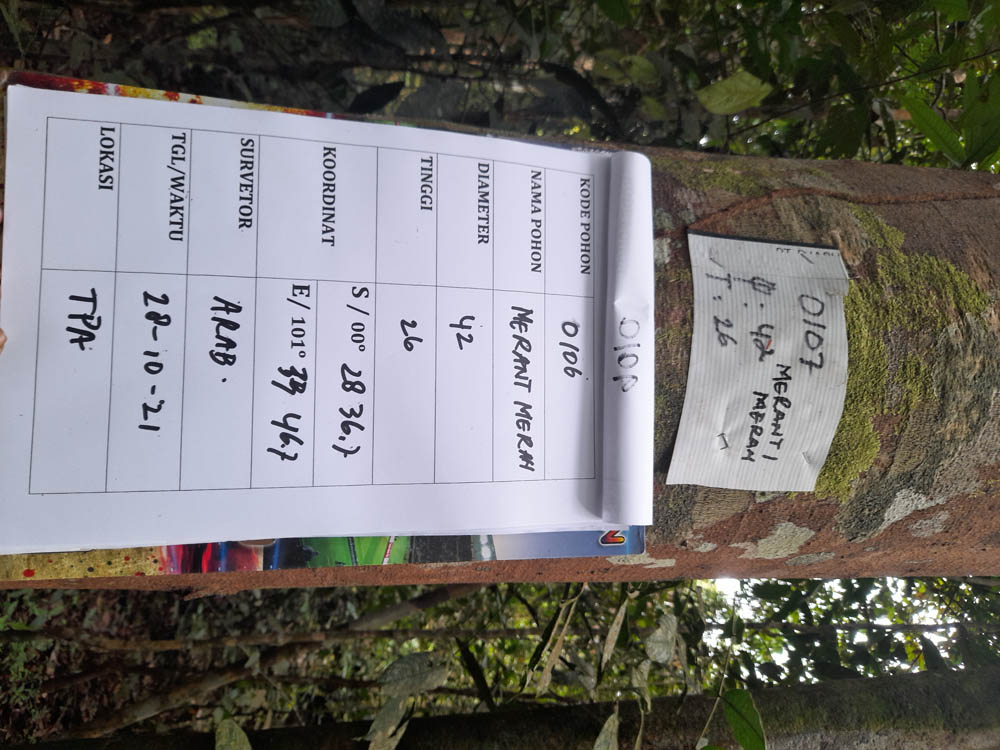 0107
MERANTI
MERAH
φ : 42
T : 26
KODE POHON 0106
NAMA POHON MERANT MERAH
DIAMETER 42
TINGGI 26
KOORDINAT
S / 00° 28 36.7
E/ 101° 46.7
SURVETOR ARAB.
TGL/WAKTU 28-10-21
LOKASI TPA
N